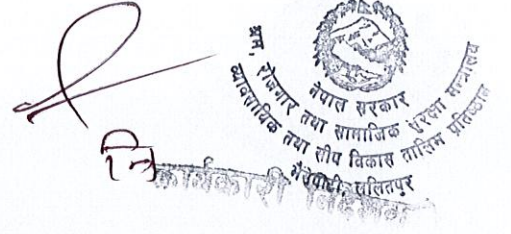 नेपाल सरकार
श्रम, रोजगार तथा सामाजिक सुरक्षा मन्त्रालय
व्यावसायिक तथा सीप विकास तालिम प्रतिष्ठान
भैंसेपाटी, ललितपुर
नि
कार्यकारी निर्देशक